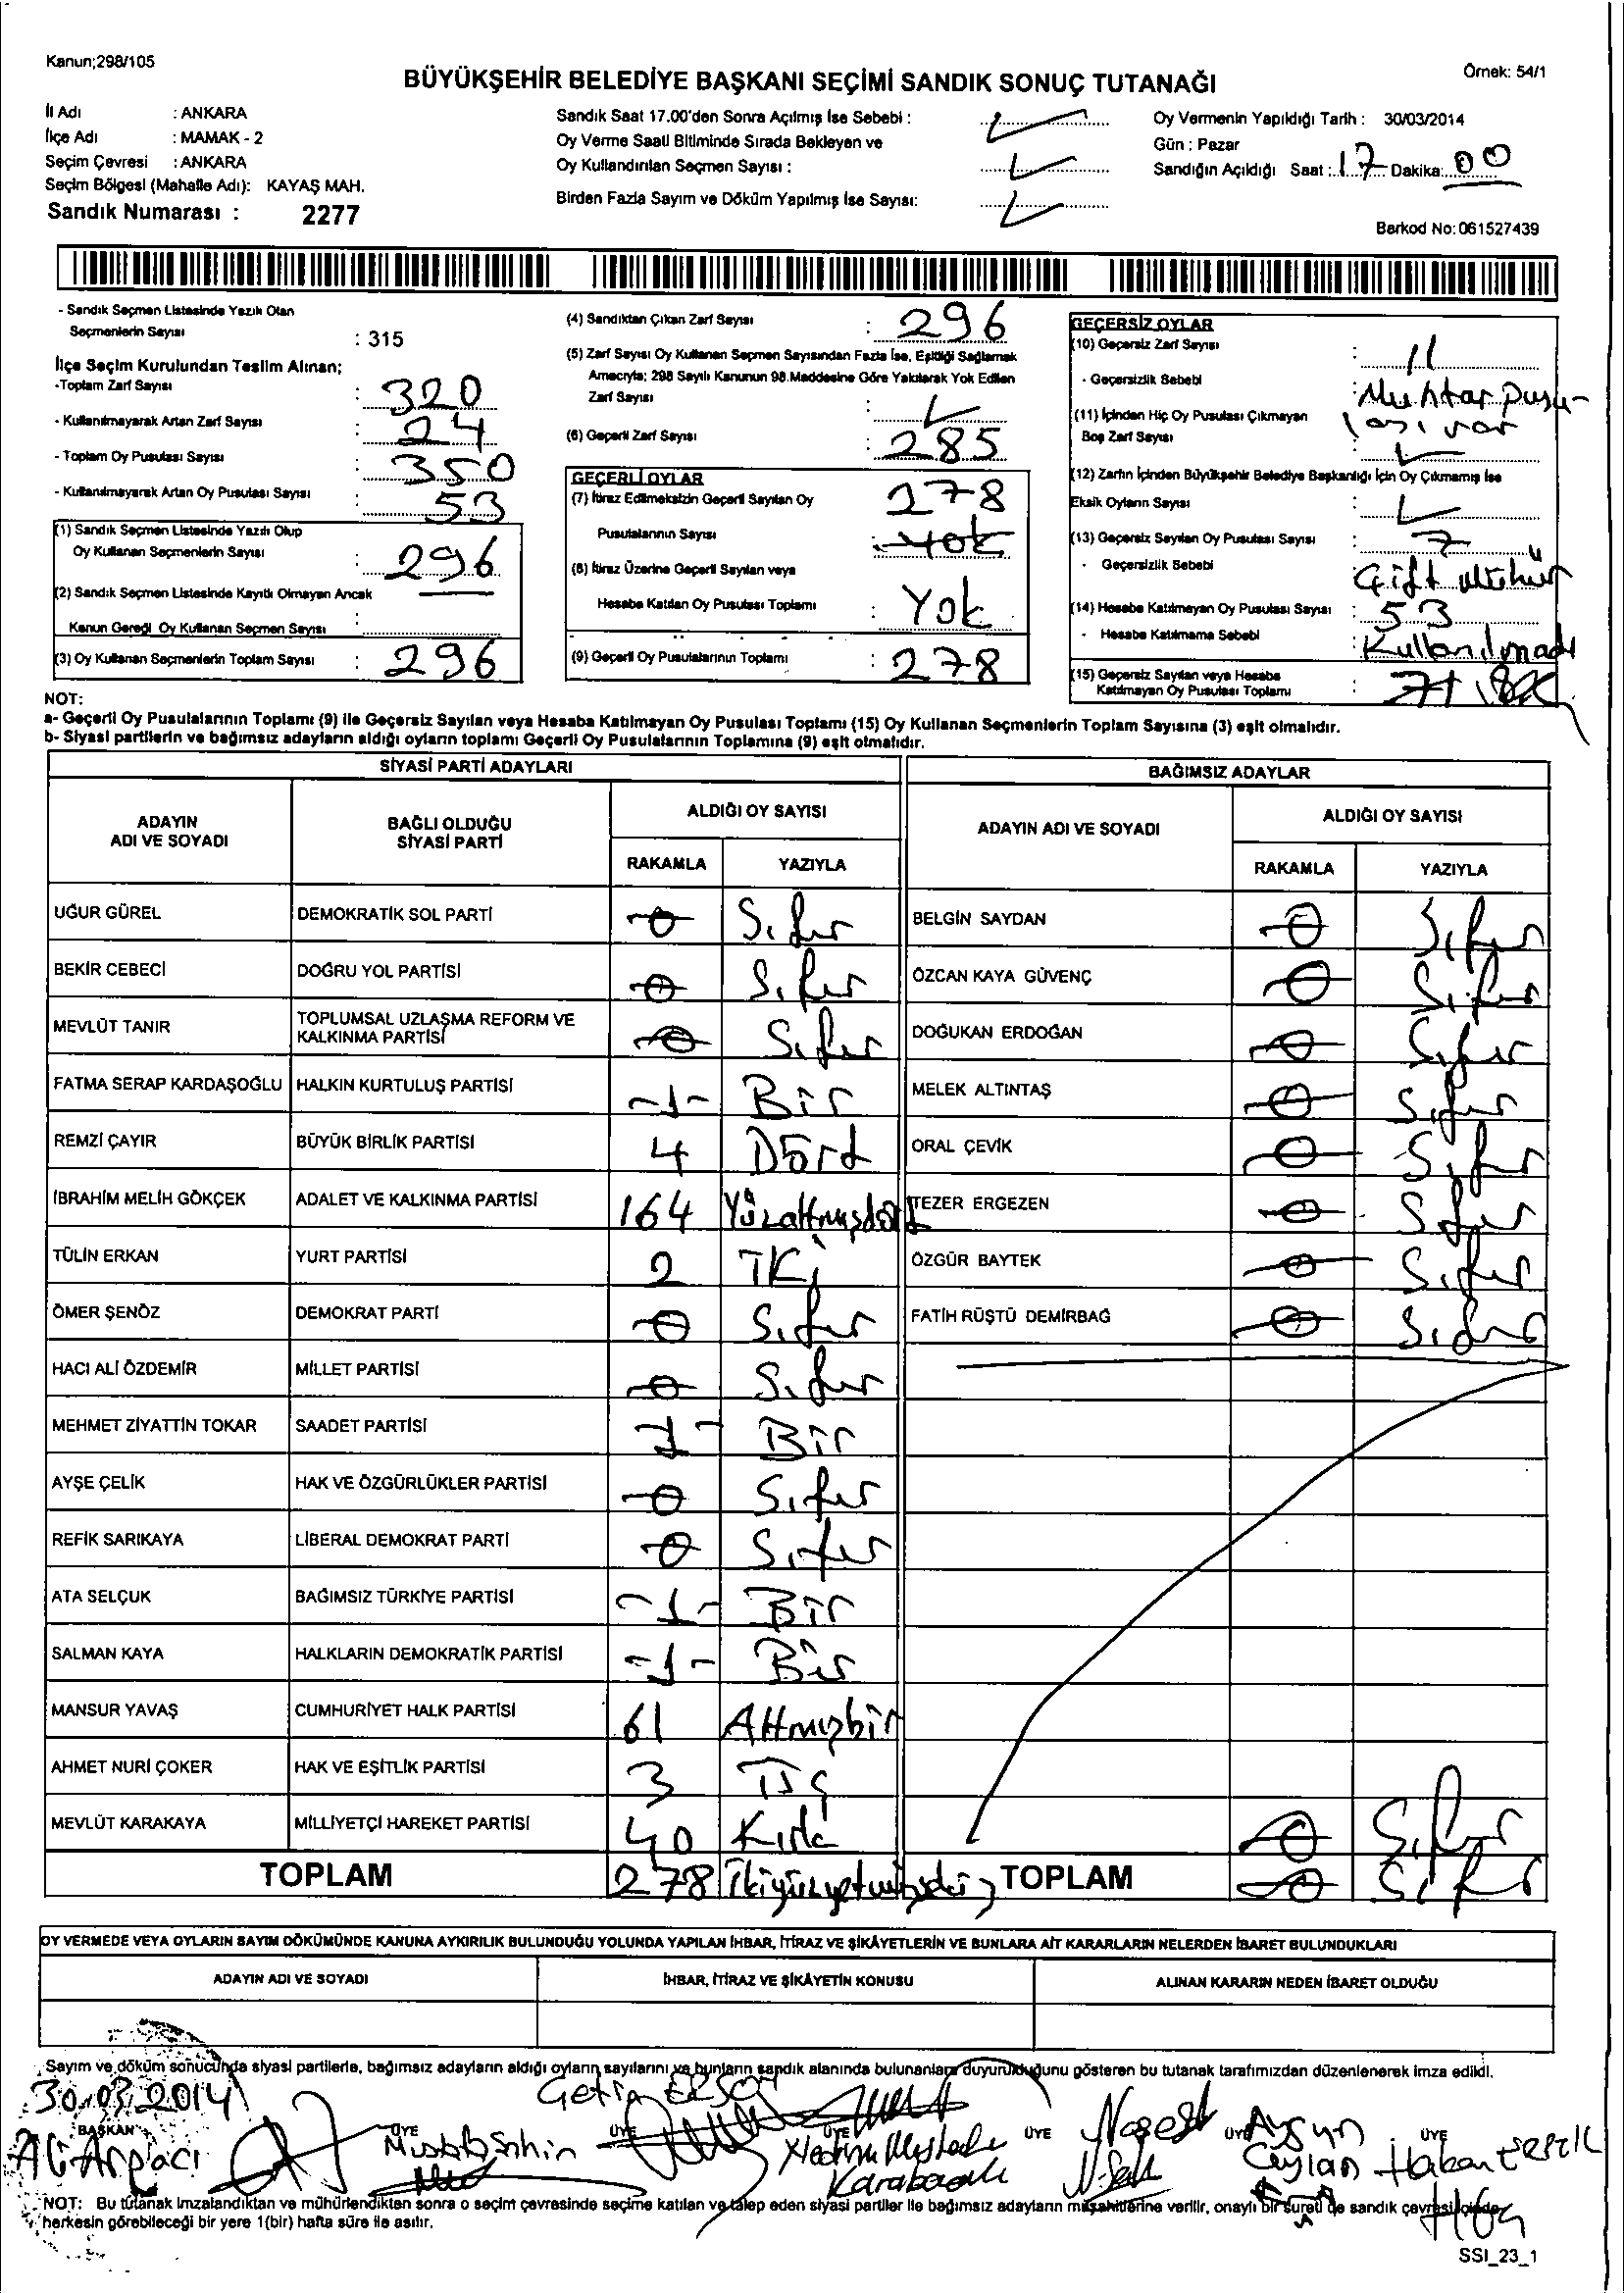 Kanun;298/105
Örnek: 54/1
BÜYÜKŞEHİR BELEDİYE BAŞKANI SEÇİMİ SANDIK SONUÇ TUTANAĞI
İl Adı : ANKARA
İlçe Adı : MAMAK - 2
Seçim Çevresi : ANKARA
Seçim Bölgesi (Mahalle Adı): KAYAŞ MAH.
Sandık Numarası : 2277
Sandık Saat 17.00'den Sonra Açılmış İse Sebebi :
Oy Verme Saati Bitiminde Sırada Bekleyen ve
Oy Kullandırılan Seçmen Sayısı :
Birden Fazla Sayım ve Döküm Yapılmış İse Sayısı:
Oy Vermenin Yapıldığı Tarih : 30/03/2014
Gün : Pazar
Sandığın Açıldığı Saat : 17 Dakika: 00
Barkod No: 061527439
- Sandık Seçmen Listesinde Yazılı Olan
Seçmenlerin Sayısı : 315
İlçe Seçim Kurulundan Teslim Alınan;
-Toplam Zarf Sayısı : 320
- Kullanılmayarak Artan Zarf Sayısı : 24
- Toplam Oy Pusulası Sayısı : 350
- Kullanılmayarak Artan Oy Pusulası Sayısı : 53
(1) Sandık Seçmen Listesinde Yazılı Olup
Oy Kullanan Seçmenlerin Sayısı : 296
(2) Sandık Seçmen Listesinde Kayıtlı Olmayan Ancak
Kanun Gereği Oy Kullanan Seçmen Sayısı :
(3) Oy Kullanan Seçmenlerin Toplam Sayısı : 296
(4) Sandıktan Çıkan Zarf Sayısı : 296
(5) Zarf Sayısı Oy Kullanan Seçmen Sayısından Fazla İse, Eşitliği Sağlamak
Amacıyla; 298 Sayılı Kanunun 98.Maddesine Göre Yakılarak Yok Edilen
Zarf Sayısı :
(6) Geçerli Zarf Sayısı : 285
GEÇERLİ OYLAR
(7) İtiraz Edilmeksizin Geçerli Sayılan Oy 278
Pusulalarının Sayısı : Yok
(8) İtiraz Üzerine Geçerli Sayılan veya
Hesaba Katılan Oy Pusulası Toplamı : Yok
(9) Geçerli Oy Pusulalarının Toplamı : 278
GEÇERSİZ OYLAR
(10) Geçersiz Zarf Sayısı : 11
- Geçersizlik Sebebi : Muhtar pusu-
lası var
(11) İçinden Hiç Oy Pusulası Çıkmayan
Boş Zarf Sayısı :
(12) Zarfın İçinden Büyükşehir Belediye Başkanlığı İçin Oy Çıkmamış İse
Eksik Oyların Sayısı :
(13) Geçersiz Sayılan Oy Pusulası Sayısı : 7
- Geçersizlik Sebebi : Çift mühür
(14) Hesaba Katılmayan Oy Pusulası Sayısı : 53
- Hesaba Katılmama Sebebi : Kullanılmadı
(15) Geçersiz Sayılan veya Hesaba
Katılmayan Oy Pusulası Toplamı : 71
NOT:
a- Geçerli Oy Pusulalarının Toplamı (9) ile Geçersiz Sayılan veya Hesaba Katılmayan Oy Pusulası Toplamı (15) Oy Kullanan Seçmenlerin Toplam Sayısına (3) eşit olmalıdır.
b- Siyasi partilerin ve bağımsız adayların aldığı oyların toplamı Geçerli Oy Pusulalarının Toplamına (9) eşit olmalıdır.
SİYASİ PARTİ ADAYLARI
ADAYIN ADI VE SOYADI BAĞLI OLDUĞU SİYASİ PARTİ ALDIĞI OY SAYISI
RAKAMLA YAZIYLA
UĞUR GÜREL DEMOKRATİK SOL PARTİ 0 Sıfır
BEKİR CEBECİ DOĞRU YOL PARTİSİ 0 Sıfır
MEVLÜT TANIR TOPLUMSAL UZLAŞMA REFORM VE KALKINMA PARTİSİ 0 Sıfır
FATMA SERAP KARDAŞOĞLU HALKIN KURTULUŞ PARTİSİ -1- Bir
REMZİ ÇAYIR BÜYÜK BİRLİK PARTİSİ 4 Dört
İBRAHİM MELİH GÖKÇEK ADALET VE KALKINMA PARTİSİ 164 Yüzaltmışdört
TÜLİN ERKAN YURT PARTİSİ 2 İki
ÖMER ŞENÖZ DEMOKRAT PARTİ 0 Sıfır
HACI ALİ ÖZDEMİR MİLLET PARTİSİ 0 Sıfır
MEHMET ZİYATTİN TOKAR SAADET PARTİSİ -1- Bir
AYŞE ÇELİK HAK VE ÖZGÜRLÜKLER PARTİSİ 0 Sıfır
REFİK SARIKAYA LİBERAL DEMOKRAT PARTİ 0 Sıfır
ATA SELÇUK BAĞIMSIZ TÜRKİYE PARTİSİ -1- Bir
SALMAN KAYA HALKLARIN DEMOKRATİK PARTİSİ -1- Bir
MANSUR YAVAŞ CUMHURİYET HALK PARTİSİ 61 Altmışbir
AHMET NURİ ÇOKER HAK VE EŞİTLİK PARTİSİ 3 Üç
MEVLÜT KARAKAYA MİLLİYETÇİ HAREKET PARTİSİ 40 Kırk
TOPLAM 278 İkiyüzyetmişsekiz
BAĞIMSIZ ADAYLAR
ADAYIN ADI VE SOYADI ALDIĞI OY SAYISI
RAKAMLA YAZIYLA
BELGİN SAYDAN 0 Sıfır
ÖZCAN KAYA GÜVENÇ 0 Sıfır
DOĞUKAN ERDOĞAN 0 Sıfır
MELEK ALTINTAŞ 0 Sıfır
ORAL ÇEVİK 0 Sıfır
TEZER ERGEZEN 0 Sıfır
ÖZGÜR BAYTEK 0 Sıfır
FATİH RÜŞTÜ DEMİRBAĞ 0 Sıfır
0 Sıfır
TOPLAM 0 Sıfır
OY VERMEDE VEYA OYLARIN SAYIM DÖKÜMÜNDE KANUNA AYKIRILIK BULUNDUĞU YOLUNDA YAPILAN İHBAR, İTİRAZ VE ŞİKÂYETLERİN VE BUNLARA AİT KARARLARIN NELERDEN İBARET BULUNDUKLARI
ADAYIN ADI VE SOYADI İHBAR, İTİRAZ VE ŞİKÂYETİN KONUSU ALINAN KARARIN NEDEN İBARET OLDUĞU
Sayım ve döküm sonucunda siyasi partilerle, bağımsız adayların aldığı oyların sayılarını ve bunların sandık alanında bulunanlara duyurulduğunu gösteren bu tutanak tarafımızdan düzenlenerek imza edildi.
30.03.2014
BAŞKAN ÜYE ÜYE ÜYE ÜYE ÜYE ÜYE
Ali Arpacı Mustafa Şahin Çetin ERSOY Karabacak Aysun Ceylan Hakan
NOT: Bu tutanak imzalandıktan ve mühürlendikten sonra o seçim çevresinde seçime katılan ve talep eden siyasi partiler ile bağımsız adayların müşahitlerine verilir, onaylı bir sureti de sandık çevresi içinde
herkesin görebileceği bir yere 1(bir) hafta süre ile asılır.
SSI_23_1